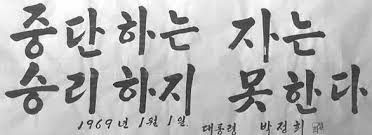 중단하는 자는
승리하지 못한다
1969년 1월 1일 대통령 박정희